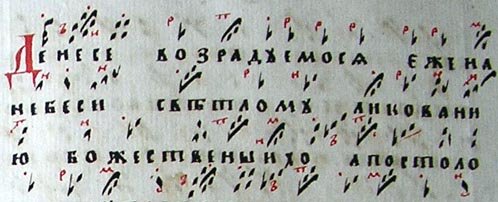 Денесе возрадуемося еже на
небеси свѣтлому ликовани
ю божественыихо апостоло